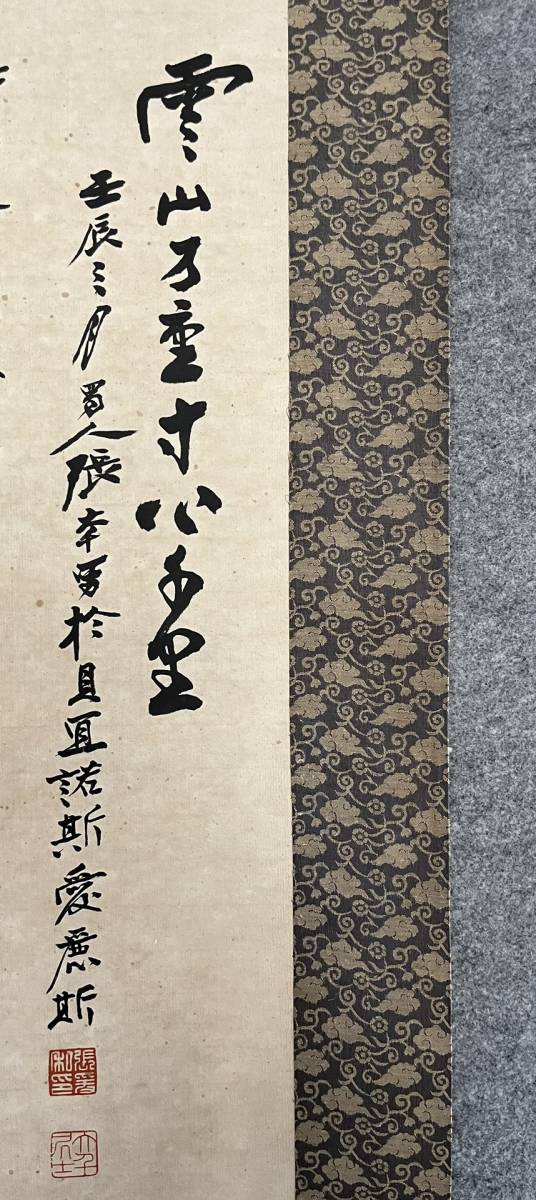 雲山万重寸心千里
壬辰三月蜀人張李寫於貝宜諾斯愛麗斯
張爰私印
大千居士